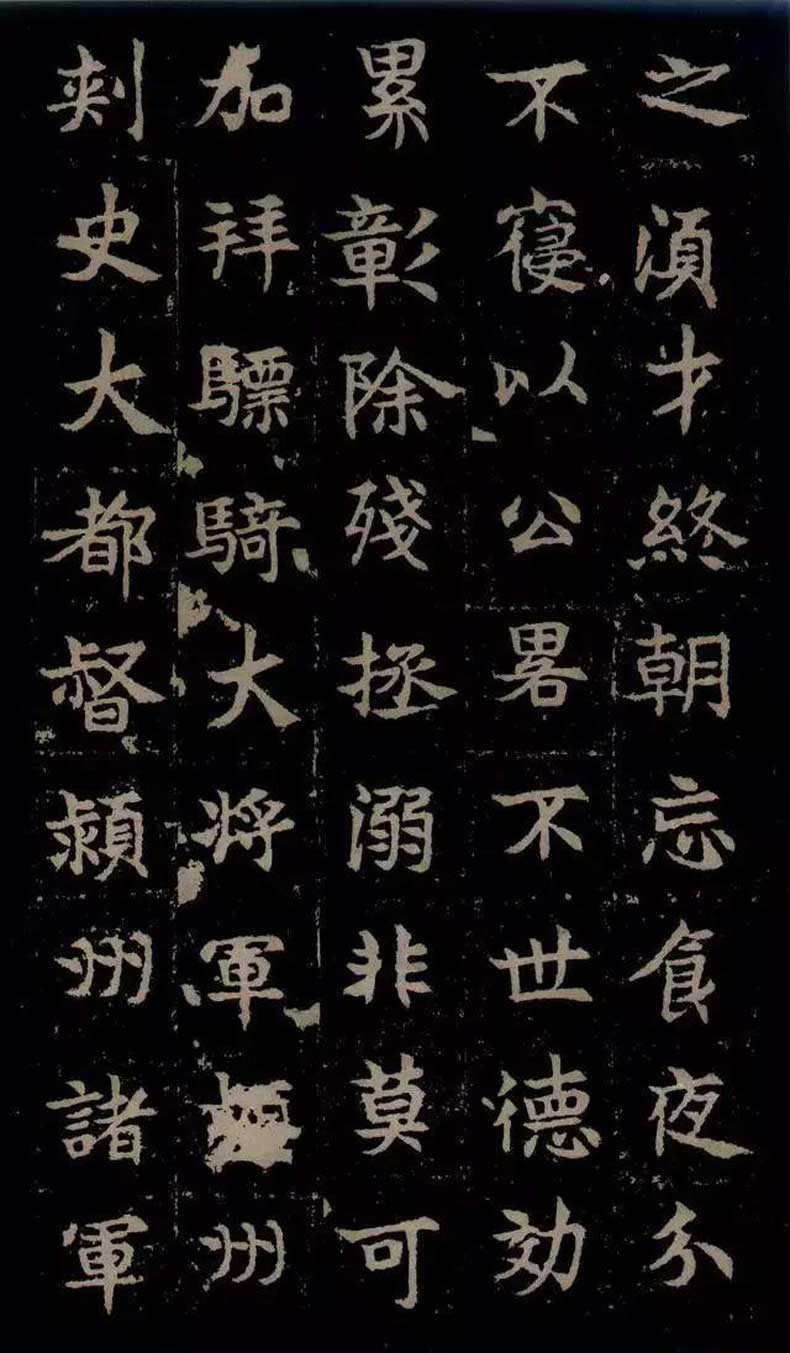 之須才終朝忘食夜分
不寑以公畧不世德効
累彰除殘拯溺非莫可
加拜驃騎大將軍州
刺史大都督潁州諸軍